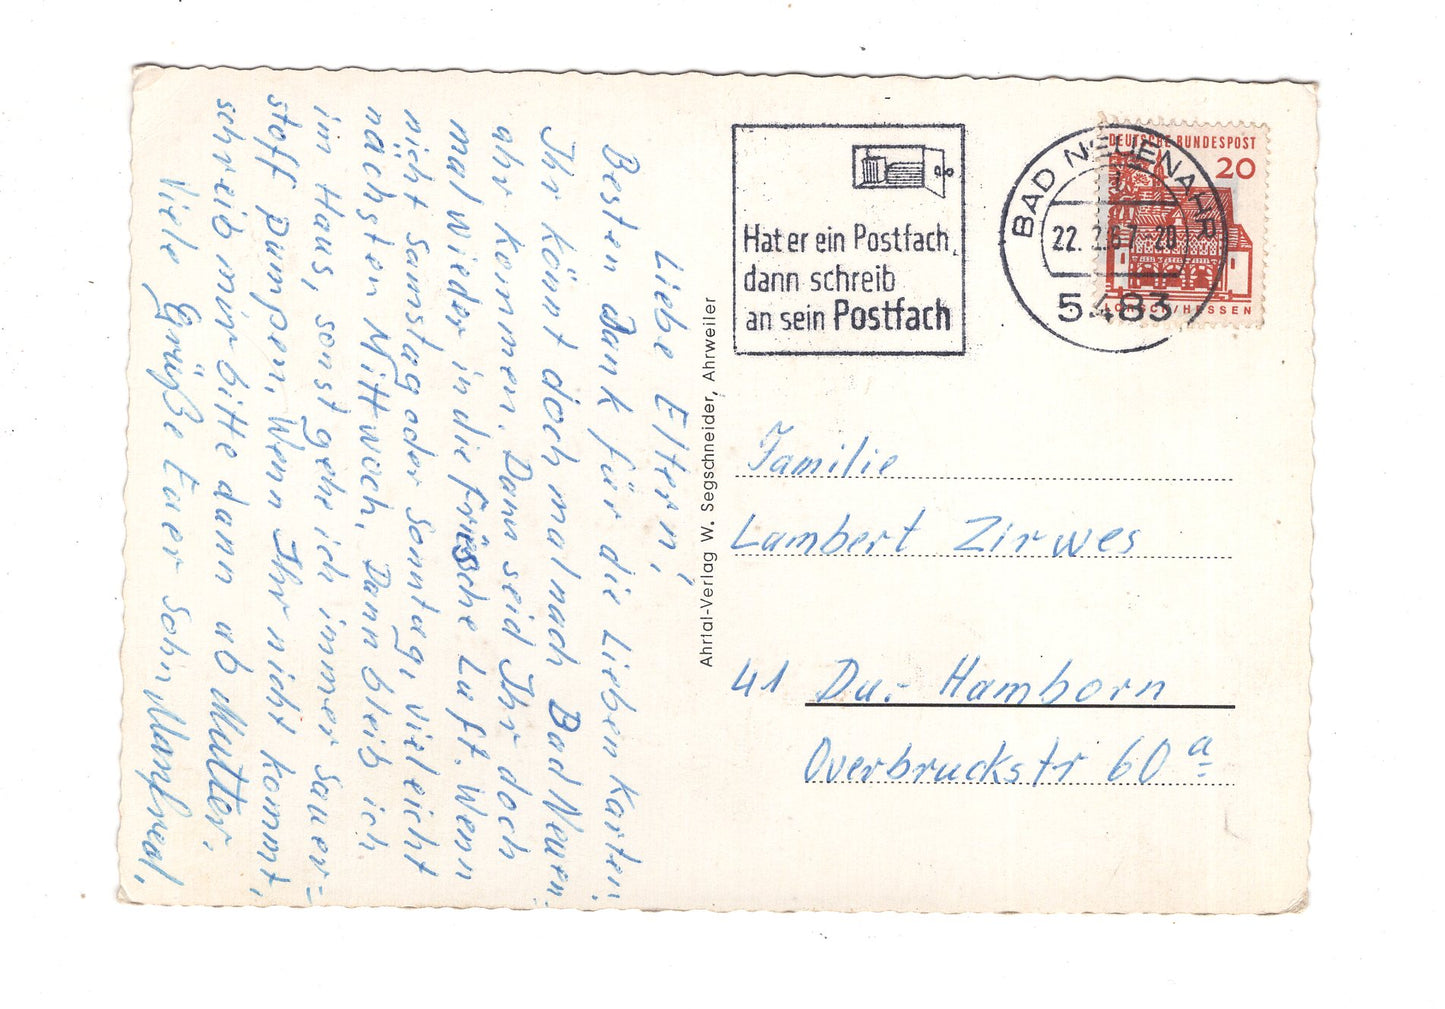 Liebe Eltern!
Besten Dank für die lieben Karten.
Ihr könnt doch mal nach Bad Neuen-
ahr kommen. Dann seid Ihr doch
mal wieder in die frische Luft. Wenn
nicht Samstag oder Sonntag, vielleicht
nächsten Mittwoch. Dann bleib ich
im Haus, sonst gehe ich immer Sauer=
stoff pumpen. Wenn Ihr nicht kommt,
schreib mir bitte dann ab Mutter.
Viele Grüße Euer Sohn Manfred.
Ahrtal-Verlag W. Segschneider, Ahrweiler
Hat er ein Postfach,
dann schreib
an sein Postfach
BAD NEUENAHR
22. 2.67-20
5483
DEUTSCHE BUNDESPOST
20
LORSCH/HESSEN
Familie
Lambert Zirwes
41 Du.- Hamborn
Overbruckstr 60a